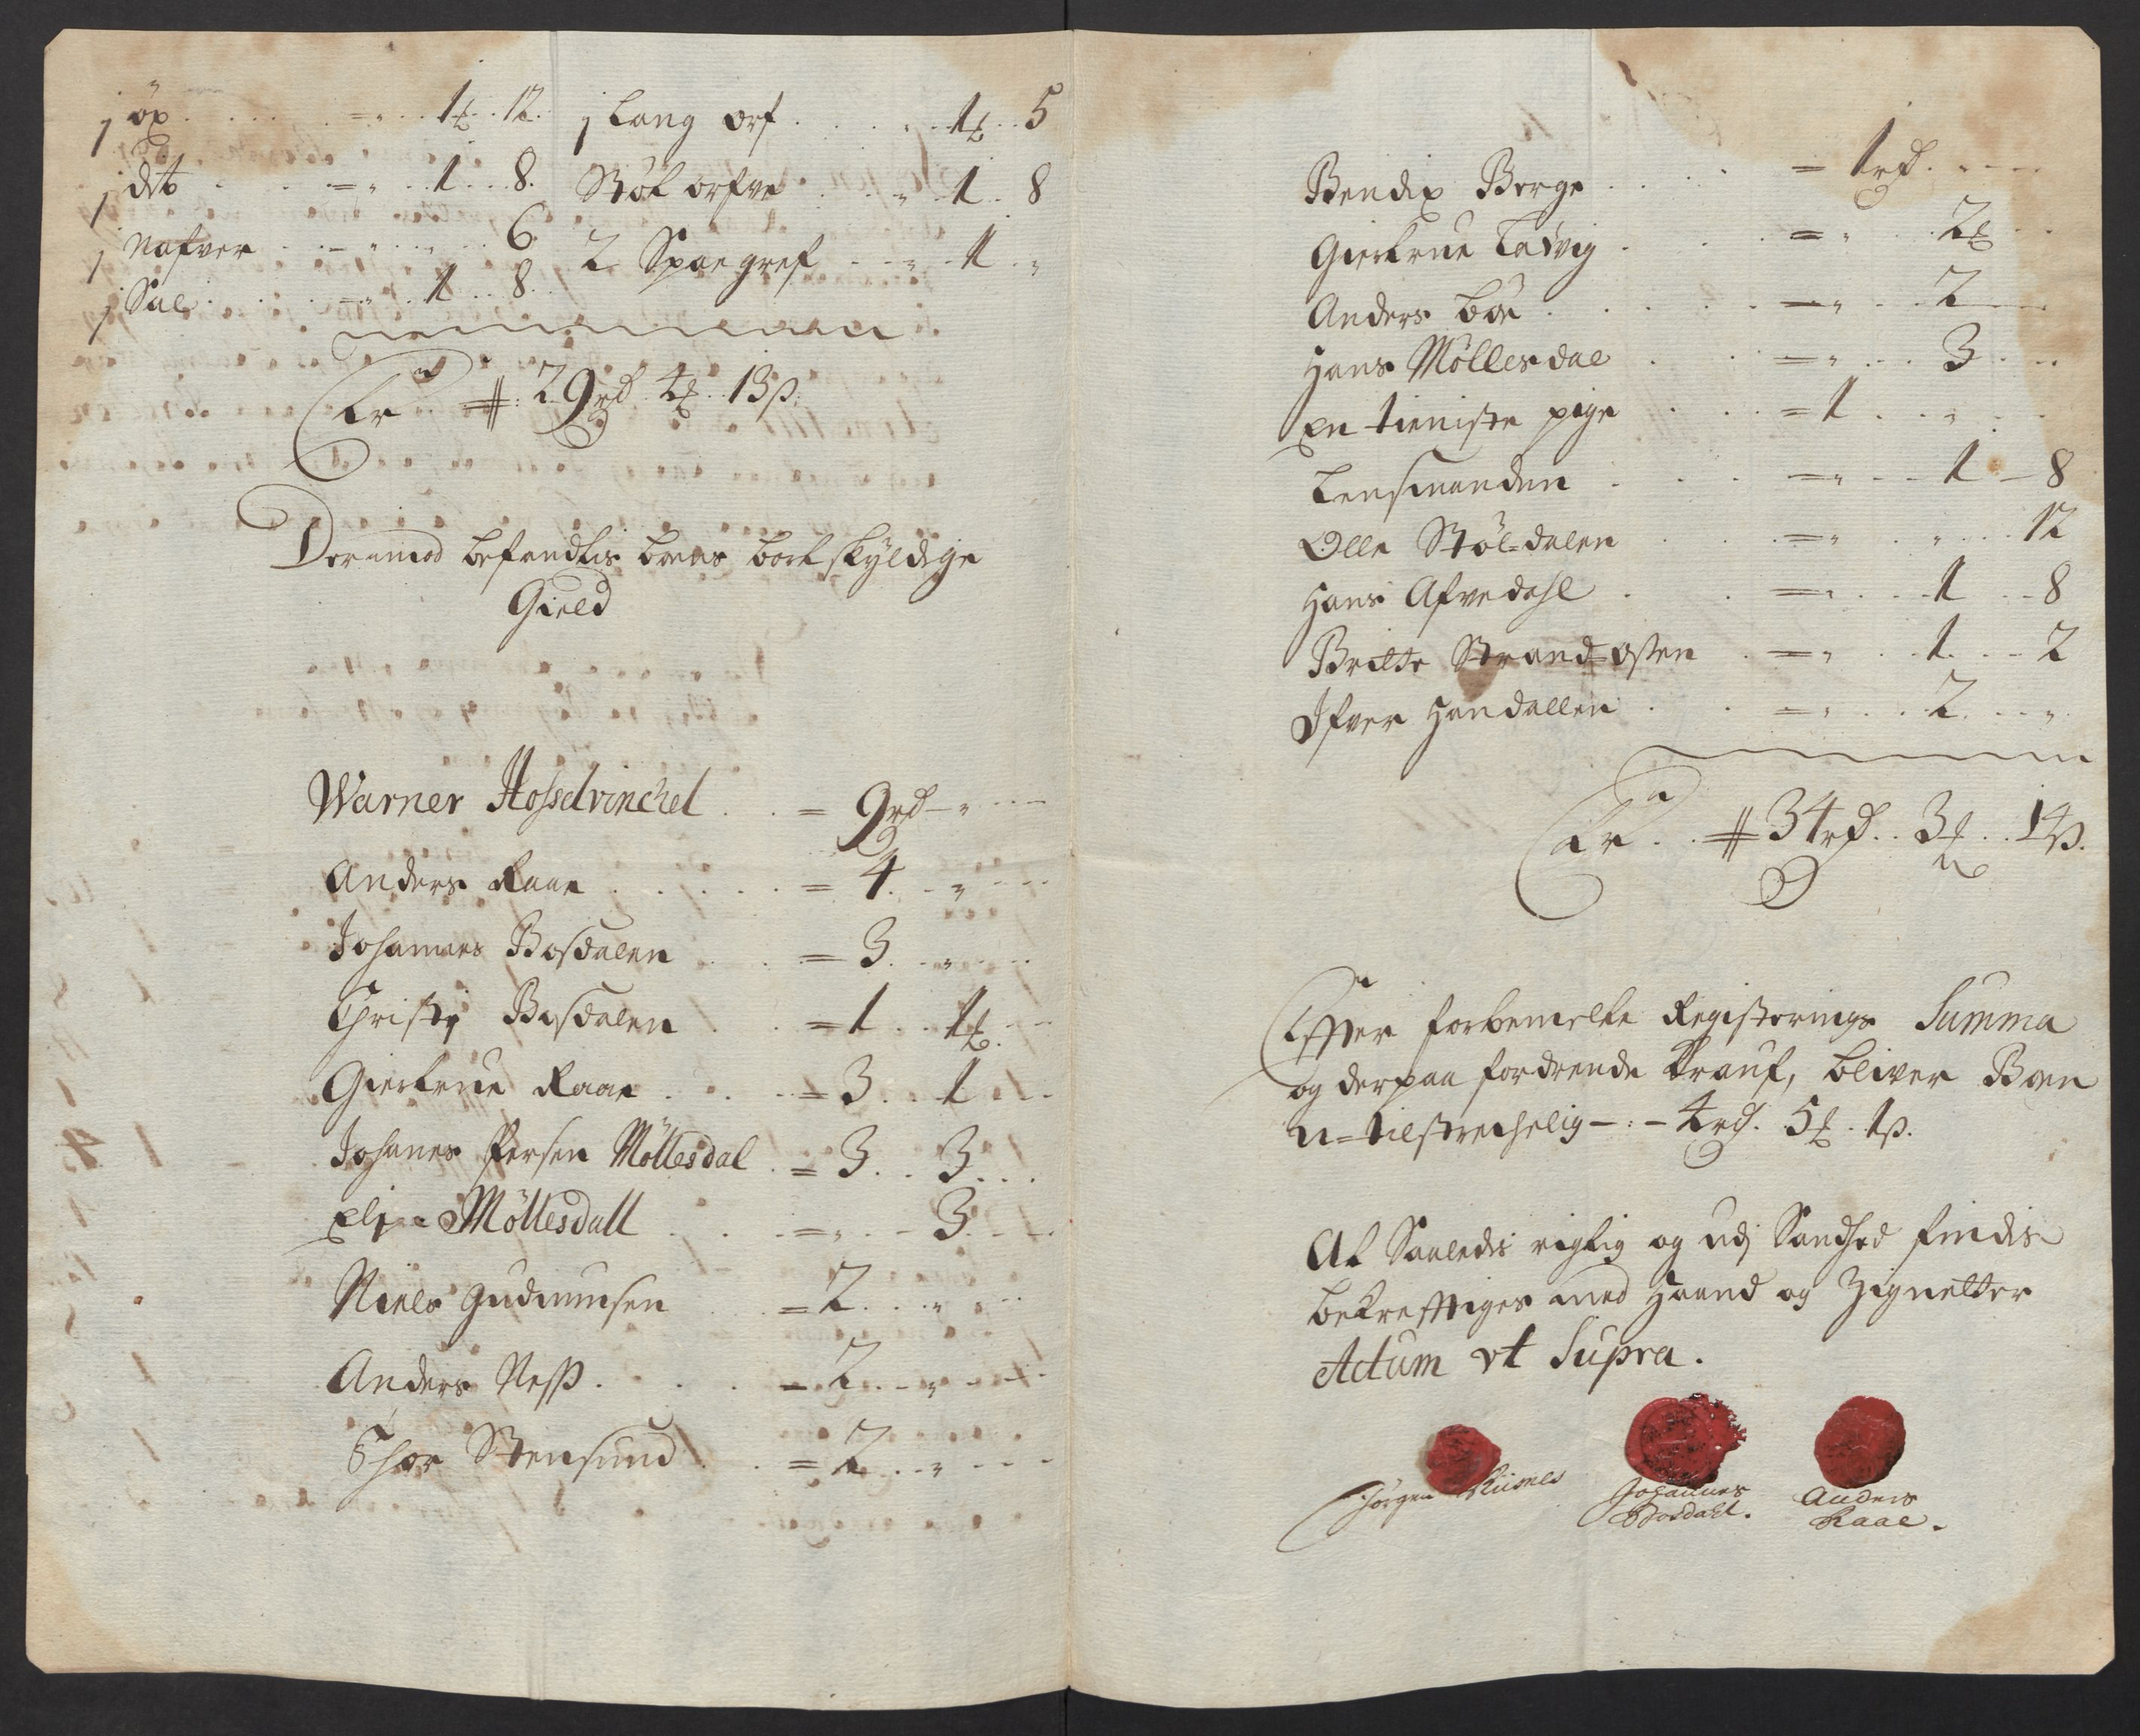 j öx . . . = " . . 1 ℔ . 12.
j dito . . . = " . . 1 . . 8.
j Nafver . . = " . . " . . 6
j Sal . . . = " . . 1 . . 8.
j Lang orf . . . " . . 1 ℔ . . 5
Stöt orfve . . . " . 1 . 8
2 Spae gref . . . " . 1 . "
Er # 29 rd 4 ℔ . 13 ß.
Derimod befindtis boens bortskyldige
Gield
Warner Hosselvinckel . . = 9 rd - " - - -
Anders Raae . . . . = 4 . . " - - -
Johannes Bosdalen . . = 3 . . " - - -
Christj Bosdalen . . = 1 . . 1 ℔ . - -
Giertrue Raae . . . = 3 . . 1 . . .
Johanes Persen Möllesdal . = 3 . . 3 . . .
Eli Möllesdall . . . = " . - 3 . - -
Niels Gudmunsen . . = 2 . . " . . .
Anders Ness . . . = 2 . . " - - -
Thor Stensund . . = 2 . . " - - -
Bendix Berge . . . = 1 rd . - - -
Giertrue Ladvig . . . = " . . 2 ℔ . .
Anders Böe . . . . = " . . 2 - -
Hans Möllesdal . . = " . . 3 . . .
En tieniste pige . . . = 1 . . " . .
Lensmanden . . . = " - - 1 - 8
Olle Stöl-dalen . . . = " . . " . . 12
Hans Afvedahl . . = " . . 1 . . 8
Britte Strand-osten . = " . . 1 . . - 2
Ifver Handallen . . = " . . 2 . . "
Er . . # 34 rd . . 3 ℔ . . 14 ß.
Effter forbemelte Registerings Summa
og derpaa fordrende Krauf, bliver Boen
u=tilstrechelig - : - 4 rd. 5 ℔ . 1 ß.
At Saaledis rigtig og udj Sandhed findis
bekrefftiges med Haand og Zignetter
Actum ut Supra.
Jörgen Riisnes
Johannes
Bosdahl.
Anders
Raae.